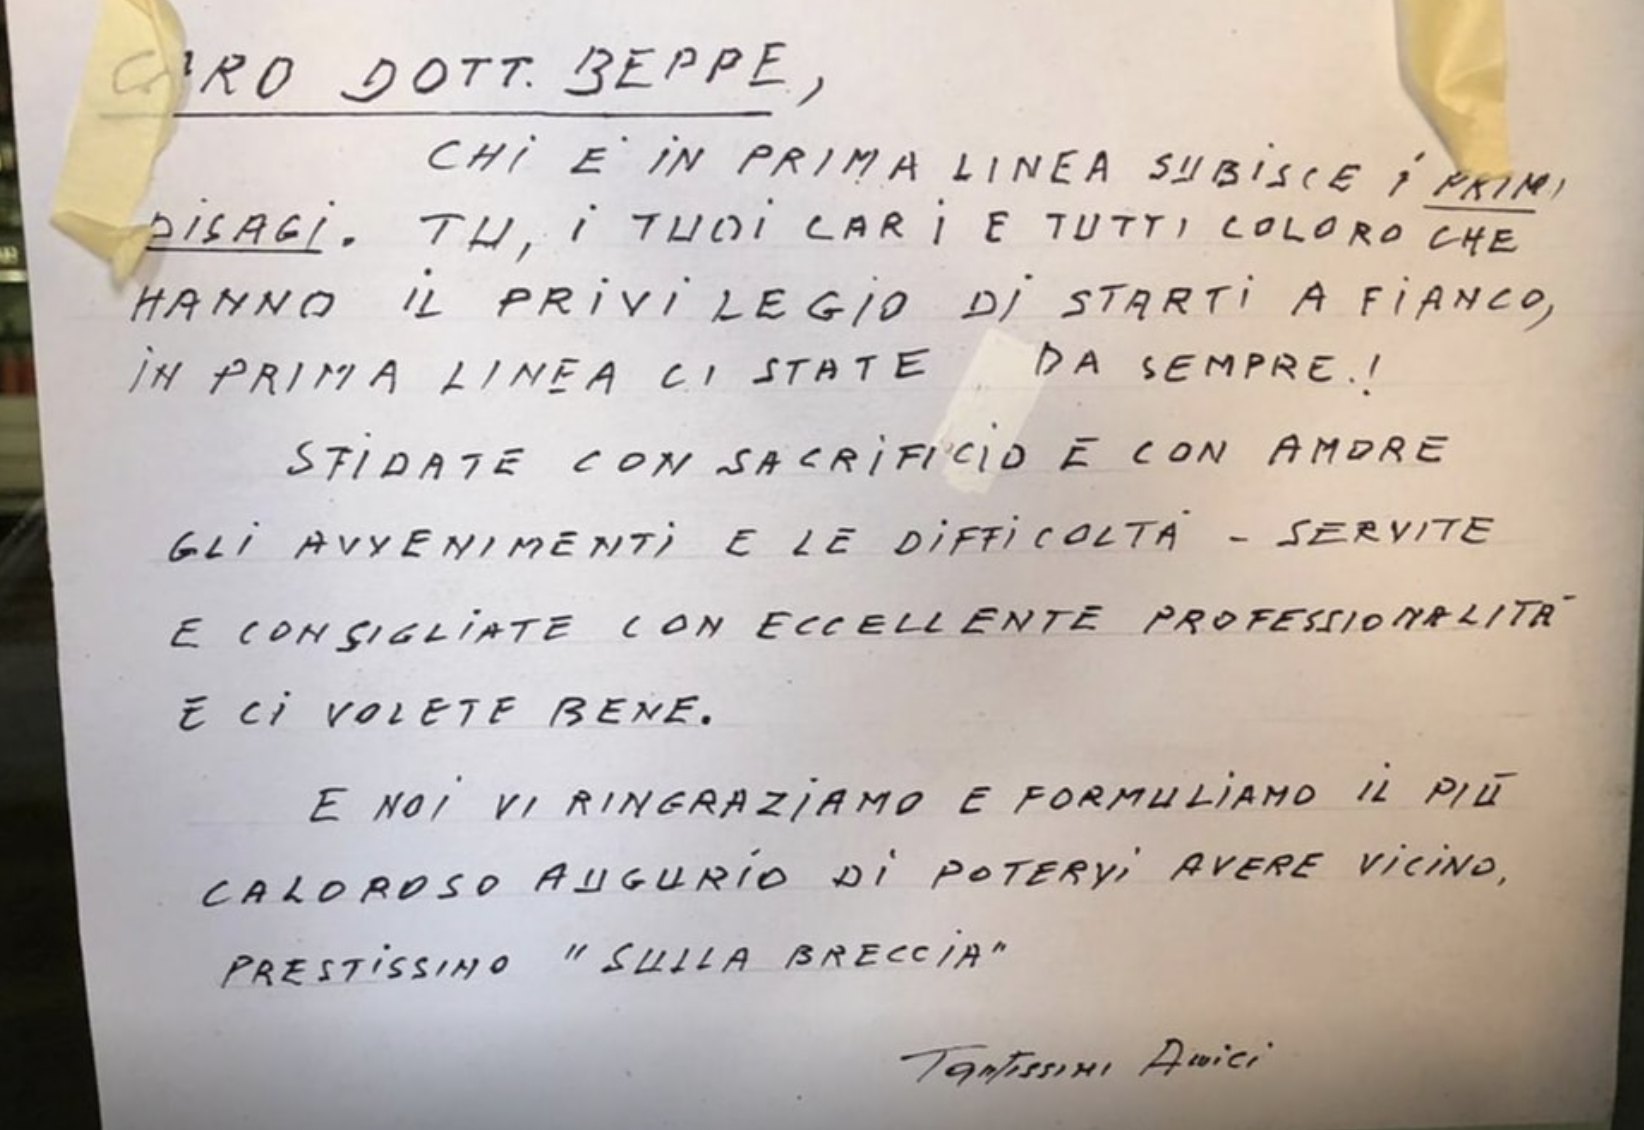 CARO DOTT. BEPPE,
CHI E' IN PRIMA LINEA SUBISCE I PRIMI
DISAGI. TU, I TUOI CARI E TUTTI COLORO CHE
HANNO IL PRIVILEGIO DI STARTI A FIANCO,
IN PRIMA LINEA CI STATE DA SEMPRE.!
SFIDATE CON SACRIFICIO E CON AMORE
GLI AVVENIMENTI E LE DIFFICOLTÀ - SERVITE
E CONSIGLIATE CON ECCELLENTE PROFESSIONALITÀ
E CI VOLETE BENE.
E NOI VI RINGRAZIAMO E FORMULIAMO IL PIÙ
CALOROSO AUGURIO DI POTERVI AVERE VICINO,
PRESTISSIMO "SULLA BRECCIA"
Tantissimi Amici